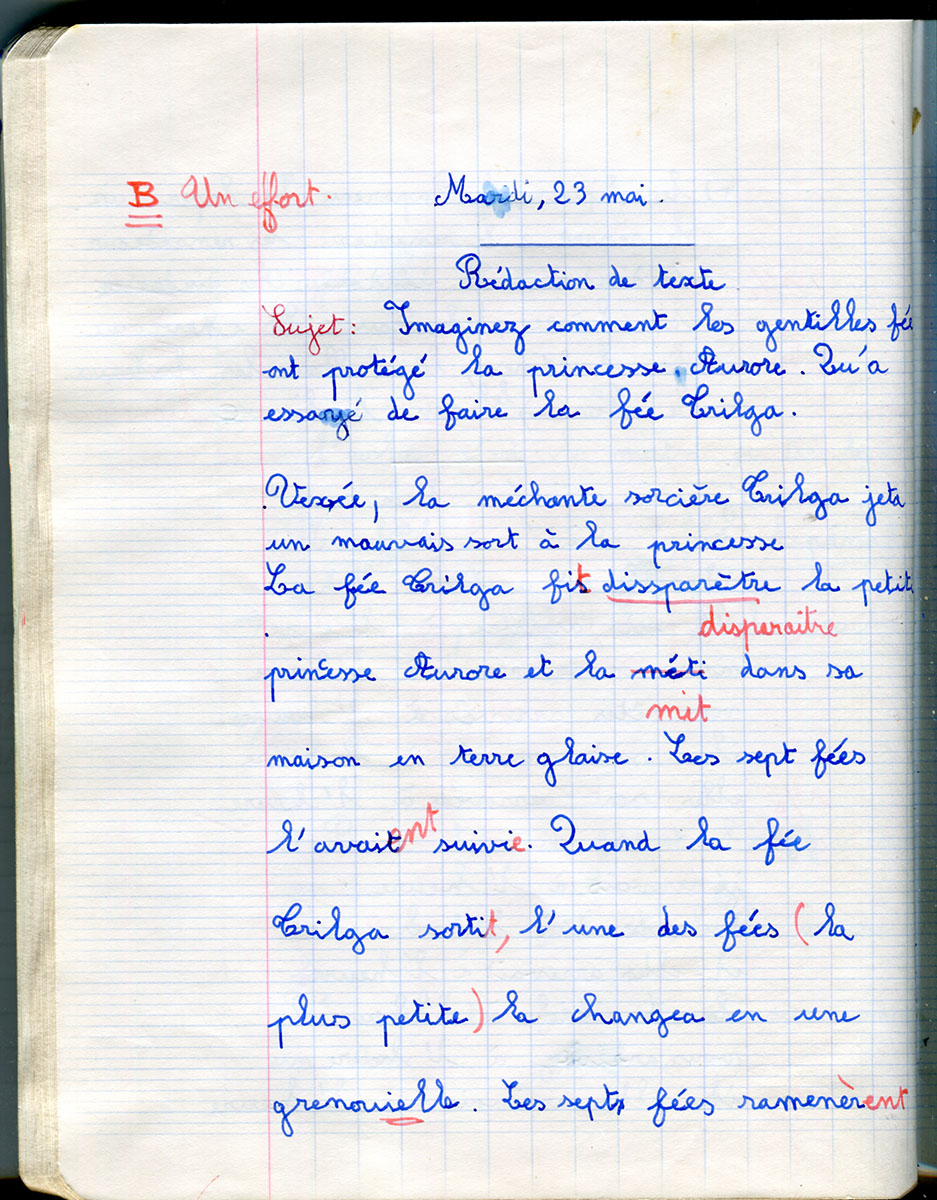 B Un effort. Mardi, 23 mai.
Rédaction de texte
Sujet: Imaginez comment les gentilles fée
ont protégé la princesse Aurore. Qu'a
essayé de faire la fée Trilga.
Vexée, la méchante sorcière Trilga jeta
un mauvais sort à la princesse
La fée Trilga fit dissparêtre la petite
disparaitre
princesse Aurore et la méti dans sa
mit
maison en terre glaise. Les sept fées
l'avaitent suivie. Quand la fée
Trilga sortit, l'une des fées (la
plus petite) la changea en une
grenouielle. Les sept fées ramenèrent